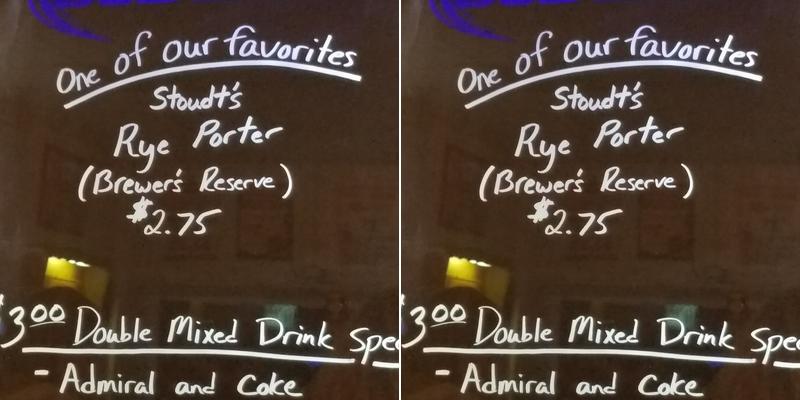 One of our favorites
Stoudt's
Rye Porter
(Brewer's Reserve)
$2.75
$3.00 Double Mixed Drink
- Admiral and Coke
One of our favorites
Stoudt's
Rye Porter
(Brewer's Reserve)
$2.75
3.00 Double Mixed Drink
- Admiral and Coke